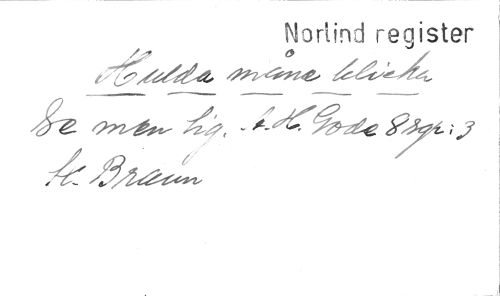 Norlind register
Hulda måne blicka
Se men lig. t. H. Gode 8 sgr: 3
H. Braun